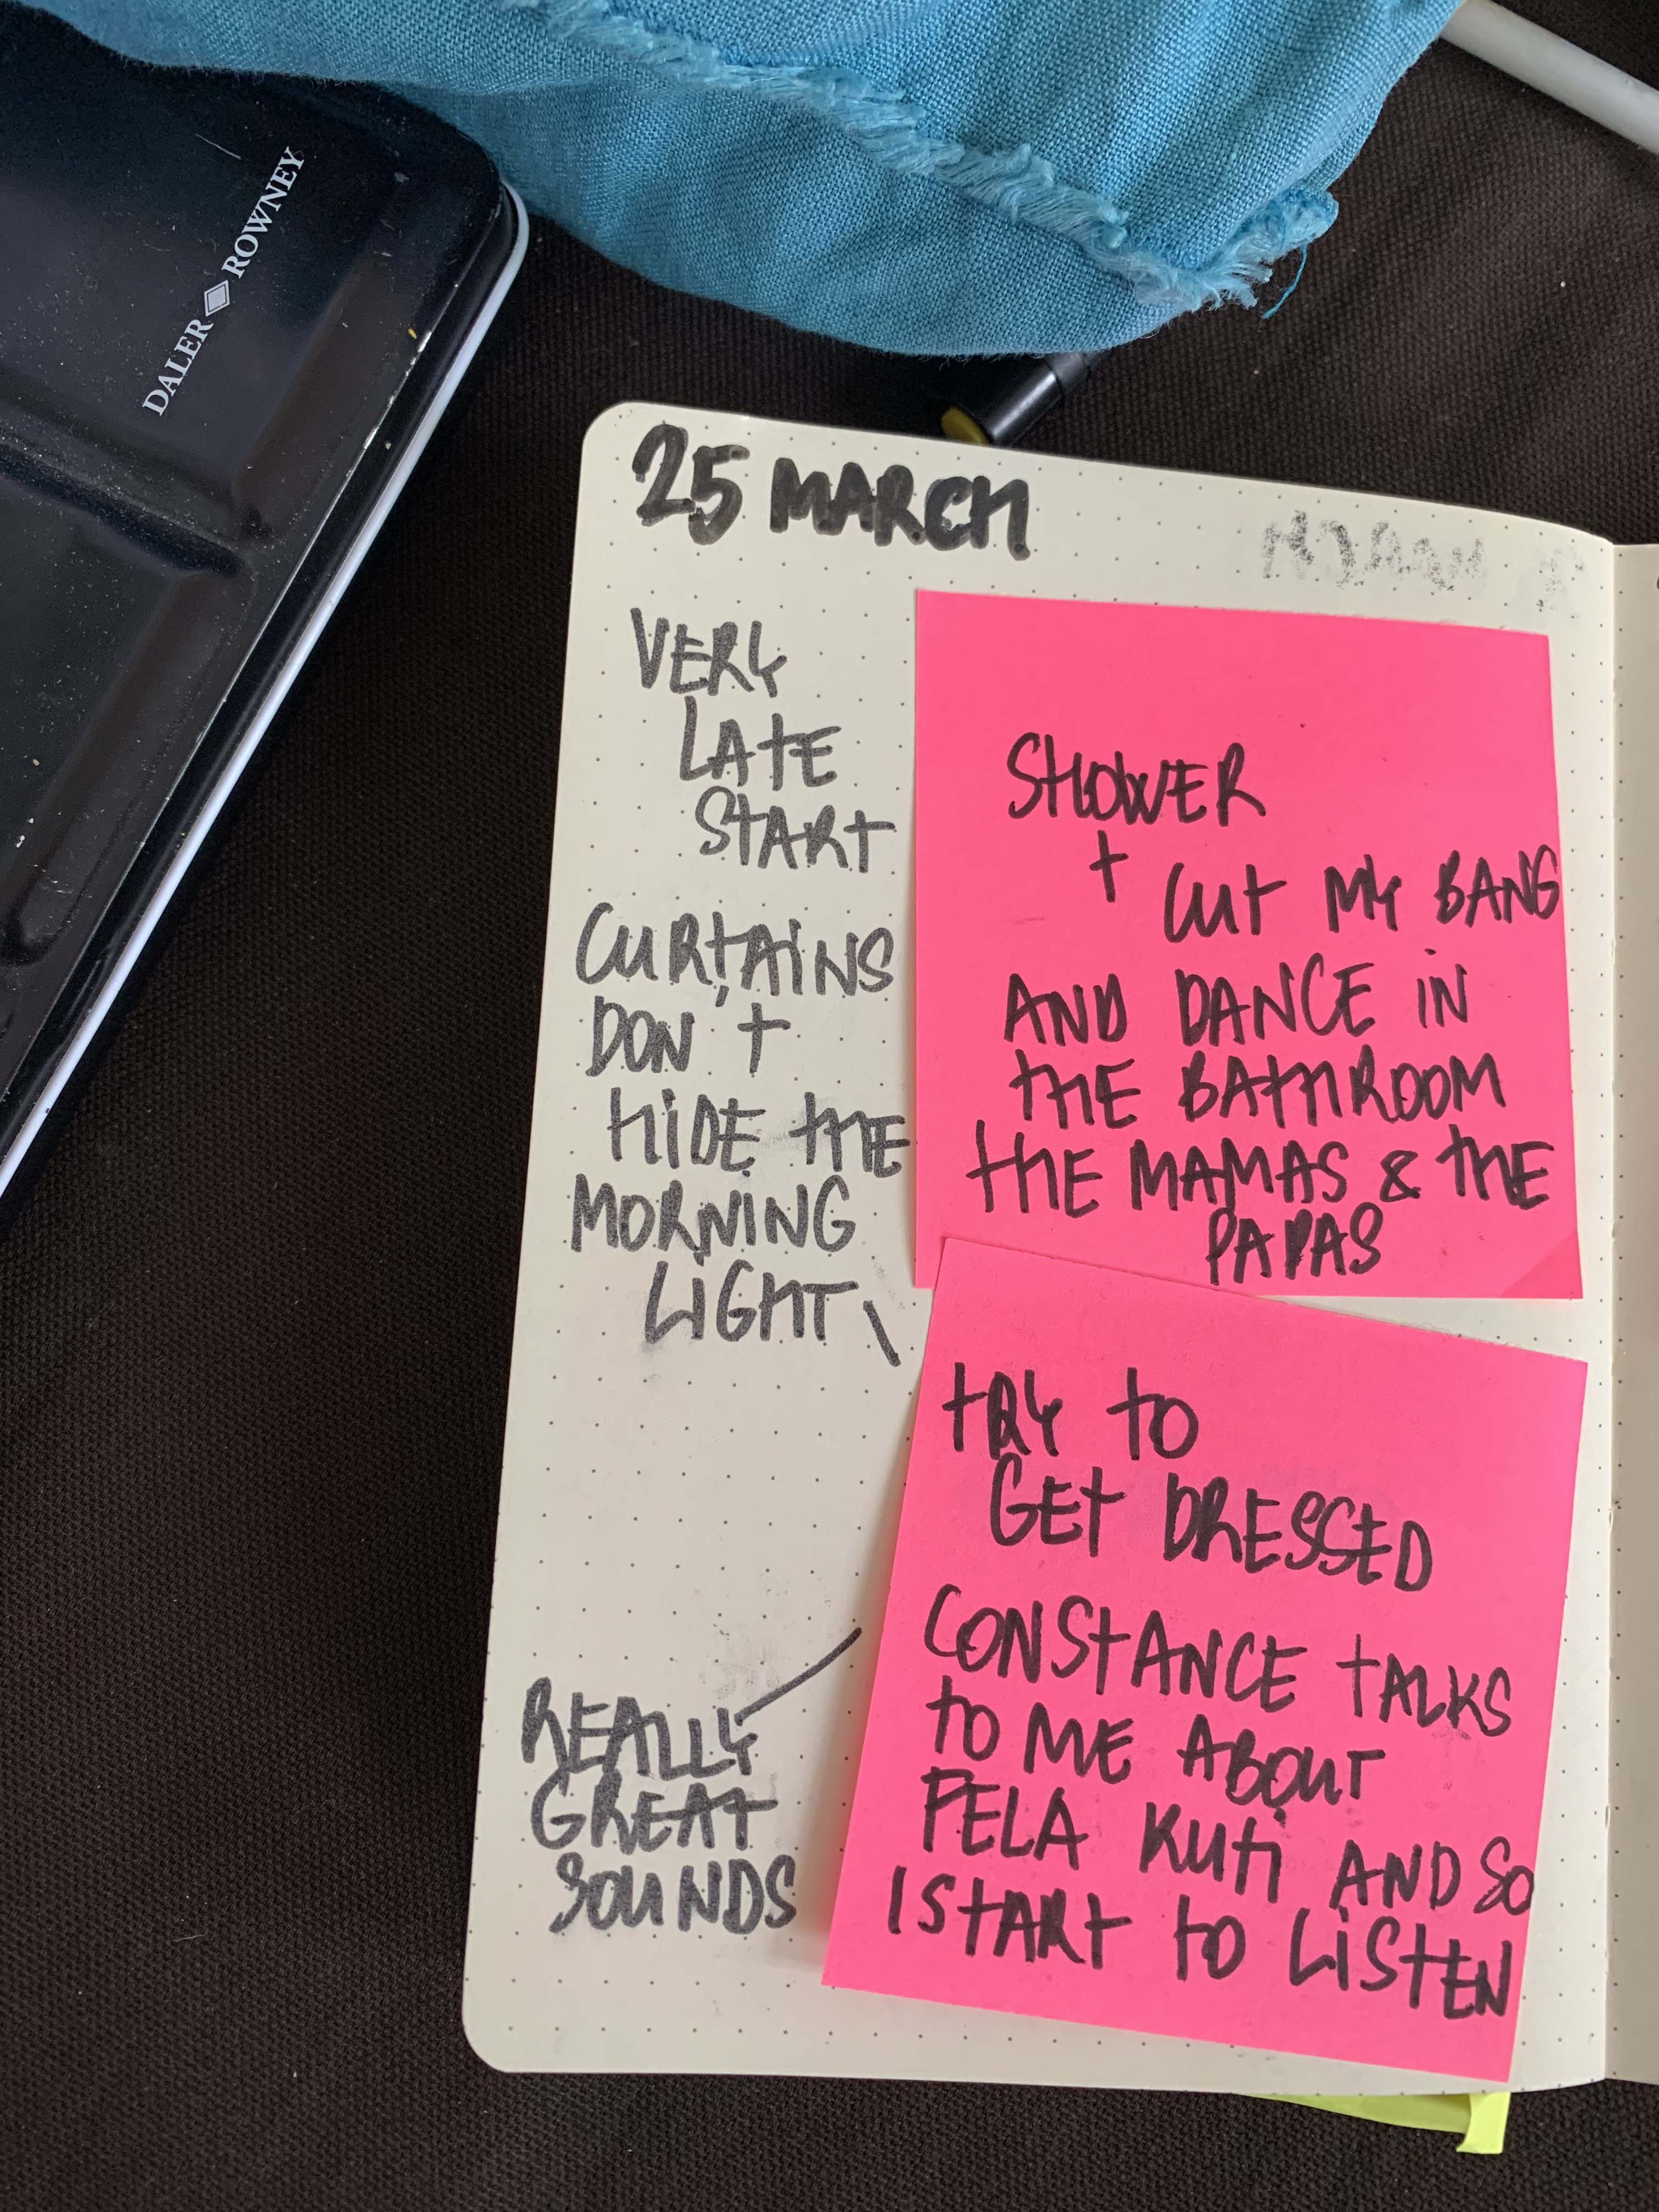 DALER ROWNEY
25 MARCH
VERY
LATE
START
CURTAINS
DON'T
HIDE THE
MORNING
LIGHT
SHOWER
+ CUT MY BANG
AND DANCE IN
THE BATHROOM
THE MAMAS & THE
PAPAS
TRY TO
GET DRESSED
CONSTANCE TALKS
TO ME ABOUT
FELA KUTI AND SO
I START TO LISTEN
REALLY
GREAT
SOUNDS